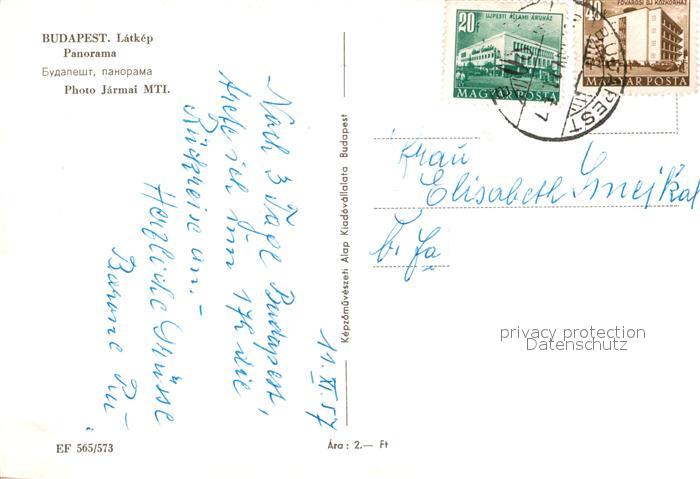 BUDAPEST. Látkép
Panorama
Будапешт, панорама
Photo Jármai MTI.
20f
UJPESTI ÁLLAMI ÁRUHÁZ
MAGYAR POSTA
40
FŐVÁROSI ÚJ KÓRHÁZ
MAGYAR POSTA
BUDAPEST
Nach 3 Tage Budapest,
trete ich um 17h die
Rückreise an.-
Herzliche Grüsse
11.XI.57
Képzőművészeti Alap Kiadóvállalata Budapest
Frau
Elisabeth Smejkal
b. Fa
privacy protection
Datenschutz
EF 565/573
Ára: 2.— Ft